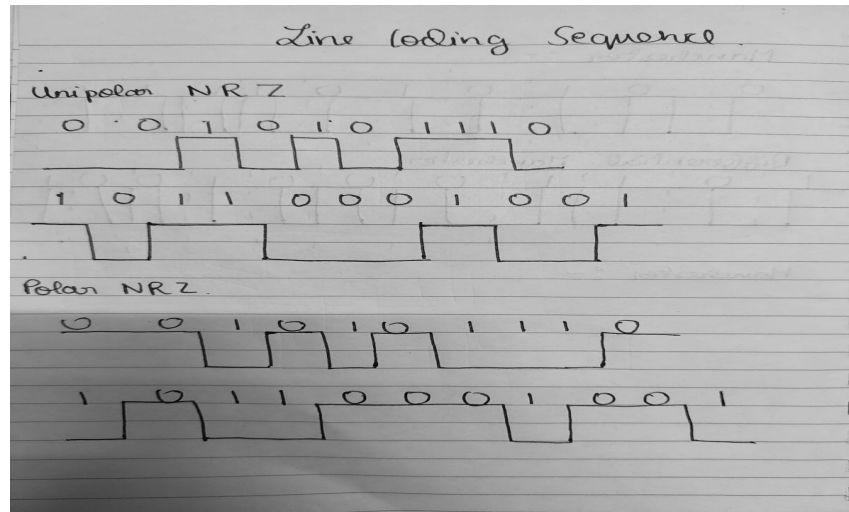 Line Coding Sequence.
Unipolar NRZ
0 0 1 0 1 0 1 1 1 0
1 0 1 1 0 0 0 1 0 0 1
Polar NRZ.
0 0 1 0 1 0 1 1 1 0
1 0 1 1 0 0 0 1 0 0 1